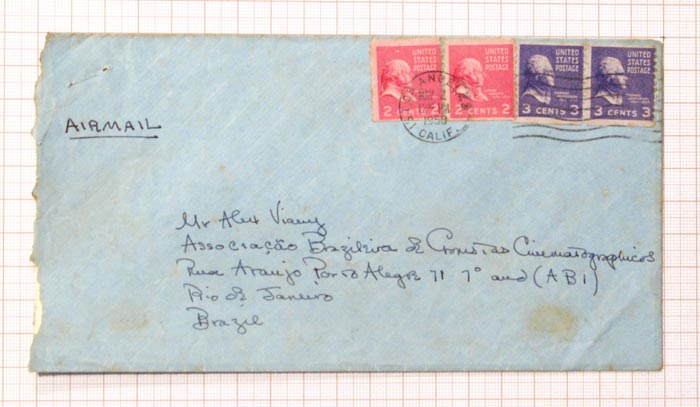 UNITED STATES POSTAGE
2 CENTS 2
UNITED STATES POSTAGE
2 CENTS 2
UNITED STATES POSTAGE
3 CENTS 3
UNITED STATES POSTAGE
3 CENTS 3
1950
CALIF.
AIRMAIL
Mr Alex Viany
Associação Brazileira de Cronistas Cinematographicos
Rua Araujo Porto Alegre 71 7º and (ABI)
Rio de Janeiro
Brazil